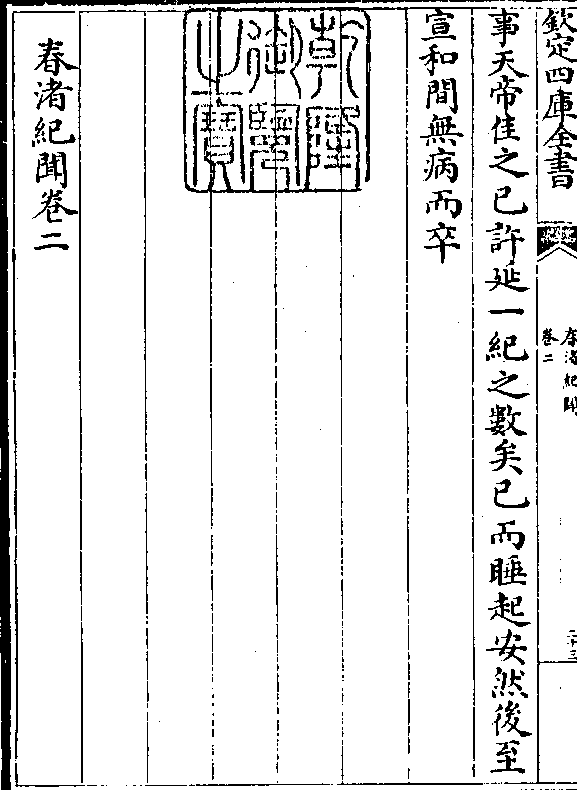 欽定四庫全書
春渚紀聞
卷二
二十三
事天帝佳之已許延一紀之數矣已而睡起安然後至
宣和間無病而卒
乾隆
御覽
之寶
春渚紀聞卷二